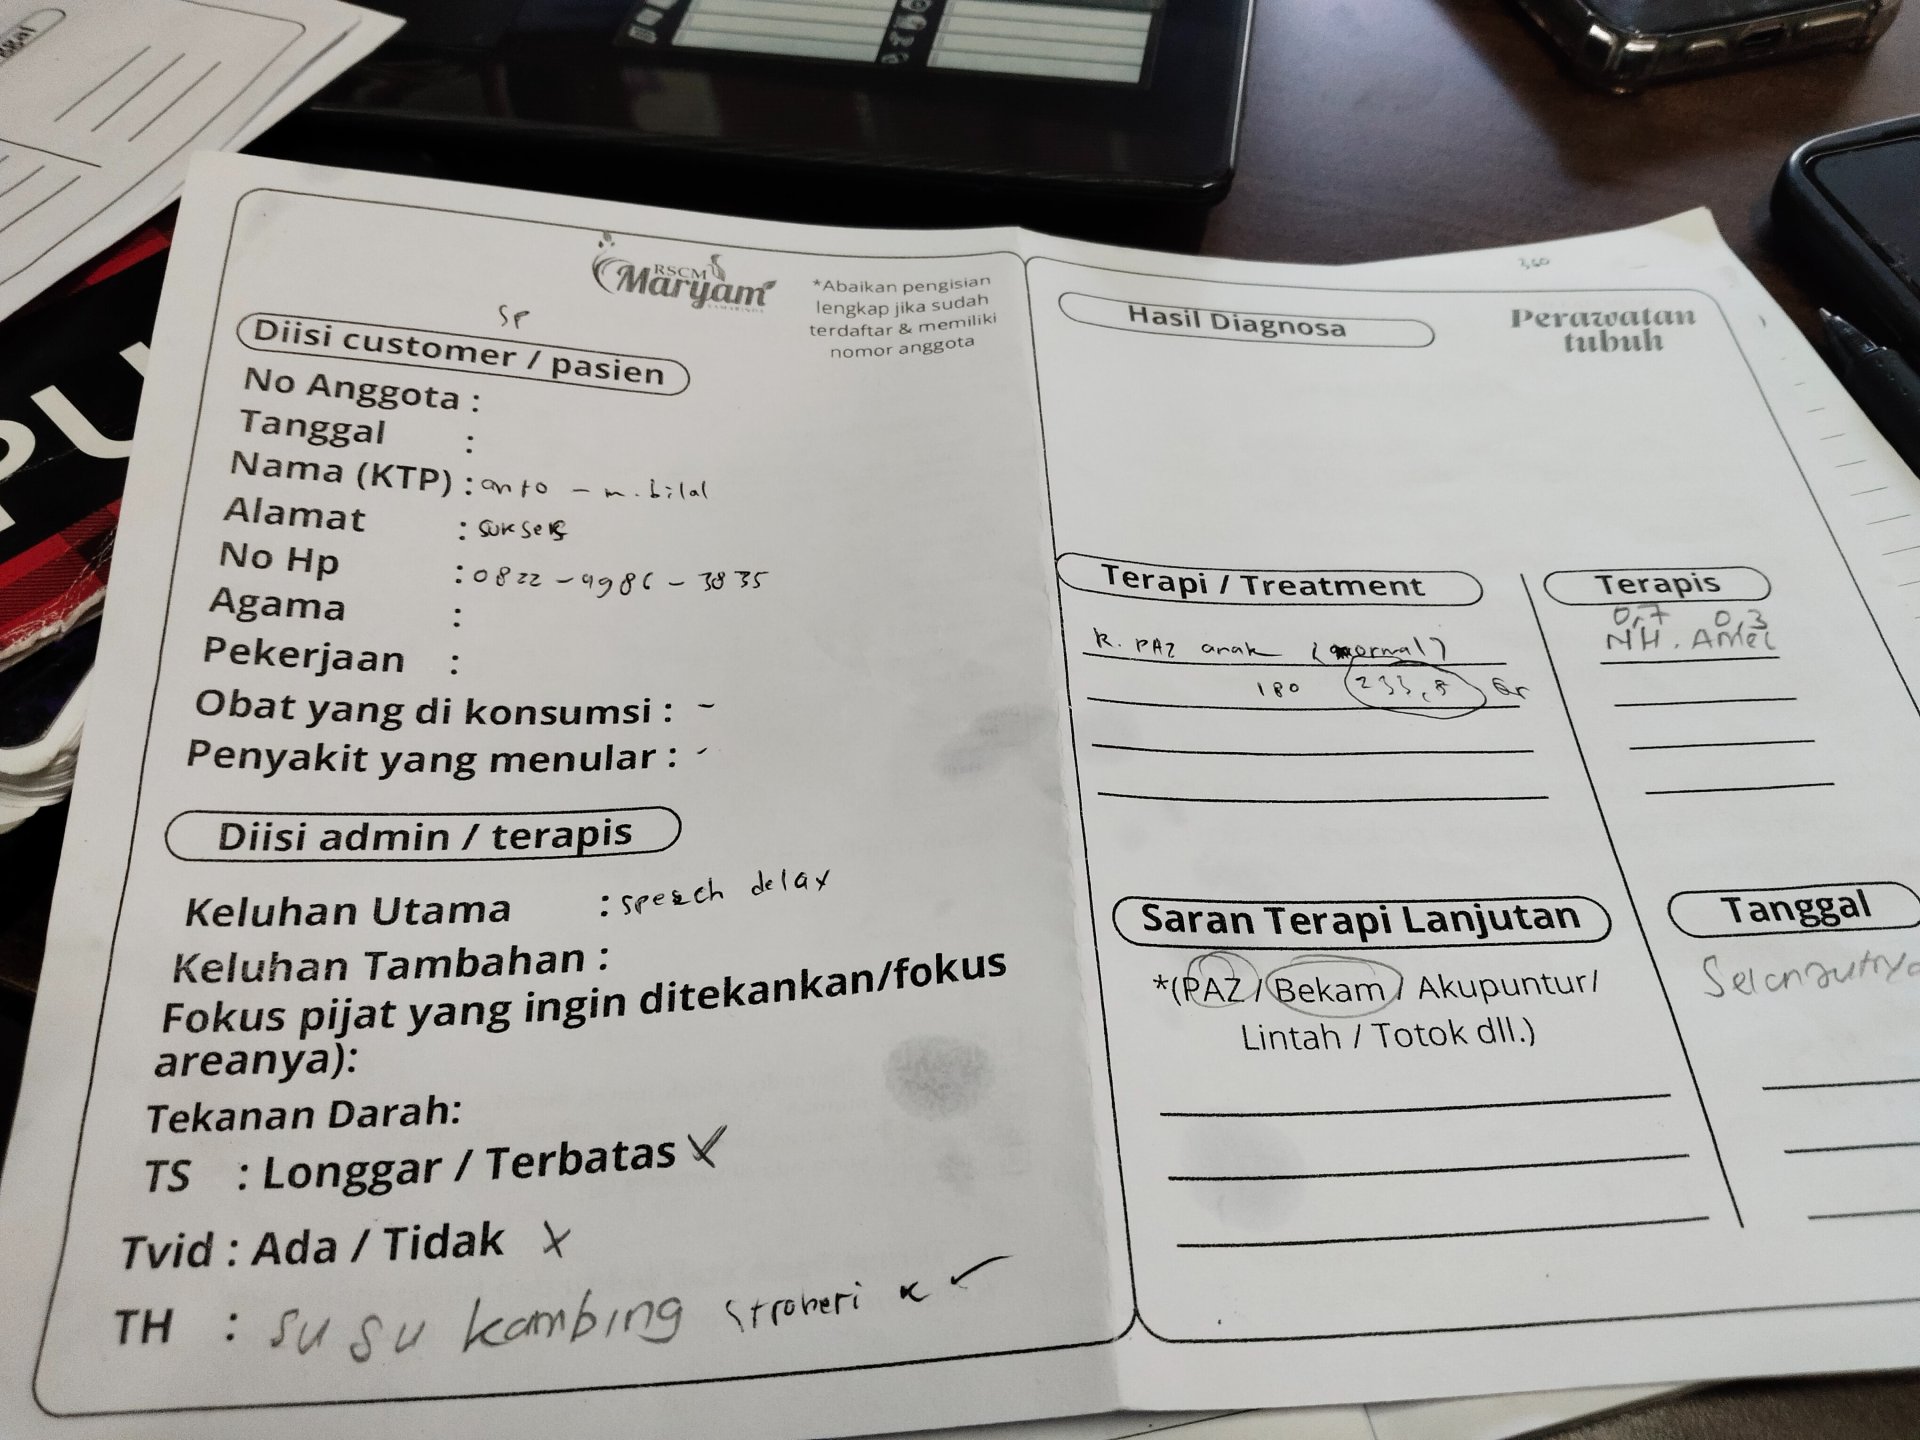 RSCM
Maryam
SAMARINDA
*Abaikan pengisian
lengkap jika sudah
terdaftar & memiliki
nomor anggota
SP
Diisi customer / pasien
No Anggota :
Tanggal :
Nama (KTP) : anto - m. bilal
Alamat :
No Hp : 0822 - 4986 - 3835
Agama :
Pekerjaan :
Obat yang di konsumsi : -
Penyakit yang menular : -
Diisi admin / terapis
Keluhan Utama : speech delay
Keluhan Tambahan :
Fokus pijat yang ingin ditekankan/fokus
areanya):
Tekanan Darah:
TS : Longgar / Terbatas X
Tvid : Ada / Tidak X
TH : susu kambing stroberi ✓
360
Hasil Diagnosa
Perawatan
tubuh
Terapi / Treatment
R. PAZ anak (normal)
180 233,8 Gr
Terapis
0,7 0,3
NH. Amel
Saran Terapi Lanjutan
*(PAZ / Bekam / Akupuntur/
Lintah / Totok dll.)
Tanggal